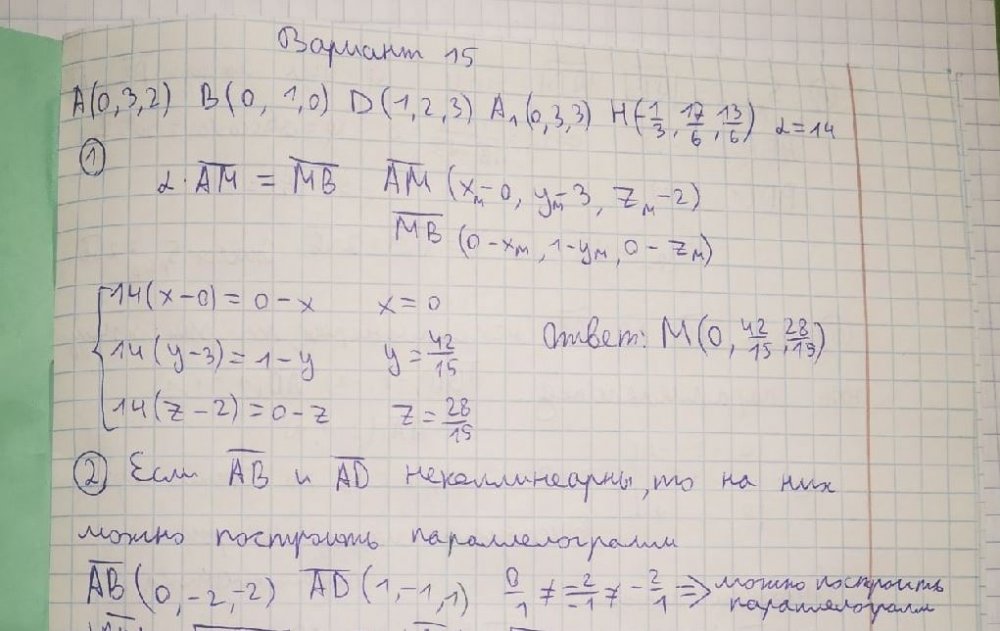 Вариант 15
A(0,3,2) B(0, 1,0) D(1,2,3) A₁(0,3,3) H(-1/3, 17/6, 13/6) α=14
① α·AM̅ = MB̅ AM̅ (xₘ-0, yₘ-3, zₘ-2)
MB̅ (0-xₘ, 1-yₘ, 0-zₘ)
14(x-0)=0-x x=0
14(y-3)=1-y y=42/15 Ответ: M(0, 42/15, 28/15)
14(z-2)=0-z z=28/15
② Если AB̅ и AD̅ неколлинеарны, то на них
можно построить параллелограмм
AB̅(0,-2,-2) AD̅(1,-1,1) 0/1 ≠ -2/-1 ≠ -2/1 ⇒ можно построить
параллелограмм